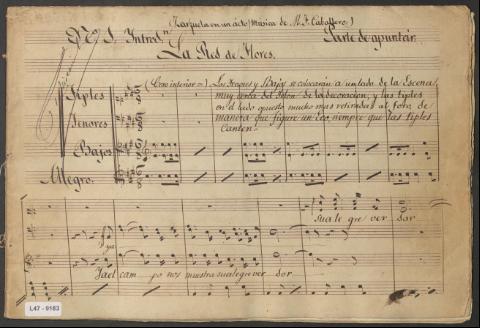 (Zarzuela en un acto, Musica de M. F. Caballero.)
Nº 1. Introdn. Parte de apuntar.
La Red de Flores.
(Coro interior =) Los Tenores y Bajos se colocarán a un lado de la Escena
muy cerca del Telon de la decoracion; y las tiples
en el lado opuesto mucho mas retiradas al foro de
manera que figure un Eco siempre que las tiples
canten.
Tiples
Tenores
Bajos
Allegro.
su a le gre ver dor
Ya
Ya el cam po nos muestra su alegre ver dor
L47 - 9183